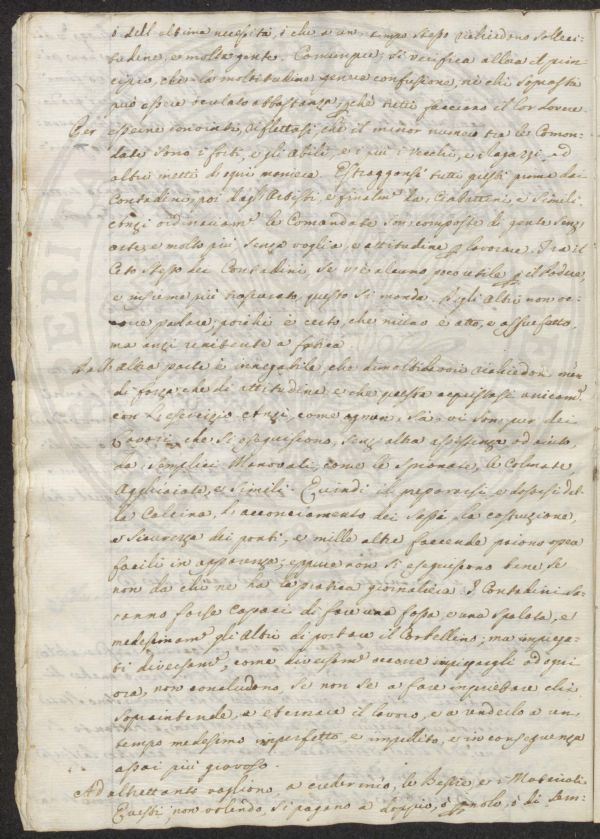 o dell'ultima necessità, i che a un tempo stesso richiedono solleci-
tudine, e molta gente. Comunque, si verifica allora il prin-
cipio, che la moltitudine genera confusione, nè chi soprasta
può essere oculato abbastanza, perchè tutti facciano il lor dovere
Per esserne convinti, riflettasi, che il minor numero tra le Coman-
date sono i forti, e gli abili, e i più i vecchi, e i ragazzi, ed
altri inetti di ogni maniera. Estraggonsi tutti questi prima dai
Contadini, poi dagl'Artisti, e finalmte da Ciabattini, e simili,
ordinariamte le Comandate son composte di gente senz'
arte, e molto più senza voglia, e attitudine p lavorare. Tra il
Ceto stesso dei Contadini, se v'è alcuno poco utile p il Podere,
e insieme più trascurato, questo si manda. Degli Altri non oc-
corre parlare, poichè è certo, che niuno è atto, e assuefatto,
ma anzi renitente a fatica
Dall'altra parte è innegabile, che dimolti lavori richiedon men
di forza che di attitudine, e che questa acquistasi unicamte
con l'esercizio, come ognun sa, vi son pur dei
Lavori, che si eseguiscono, senz'altra assistenza ed aiuto,
da semplici Manovali, come le spianate, le Colmate,
Agghiaiate, e simili. Quindi il prepararsi, e del-
la Calcina, l'acconciamento dei sassi, la costruzione,
e sicurezza dei ponti, e mille altre faccende paiono opera
facili in apparenza; eppure non si eseguiscono bene se
non da chi ne ha la pratica giornaliera. I Contadini sa-
ranno forse capaci di fare una fossa, e una spalata, e
medesimamte gli Altri di portare il Corbellino; ma impiega-
ti diversamte, come diversamte occorre impiegargli ad ogni
ora, non concludono, se non se a fare inquietare chi
sopraintende, a eternare il lavoro, e a renderlo a un
tempo medesimo imperfetto, e impedito, e in conseguenza
assai più gravoso.
Ad altrettanto vagliono, a creder mio, le Bestie, e i Materiali
Questi, non volendo, si pagano a doppio, o a nolo, o di sem-